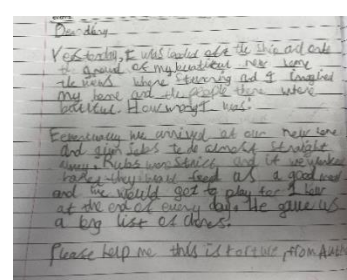 Dear diary
Yesterday, I was loaded off the ship and onto
the ground of my beautiful new home
the views where stunning and I
my home and the people there where
How I was!
we arrived at our new home
and given jobs to do almost straight
away. Rules were strict and if we
they would feed us a good meal
and we would get to play for 1 hour
at the end of every day. He gave us
a big list of chores.
Please help me this is torture from